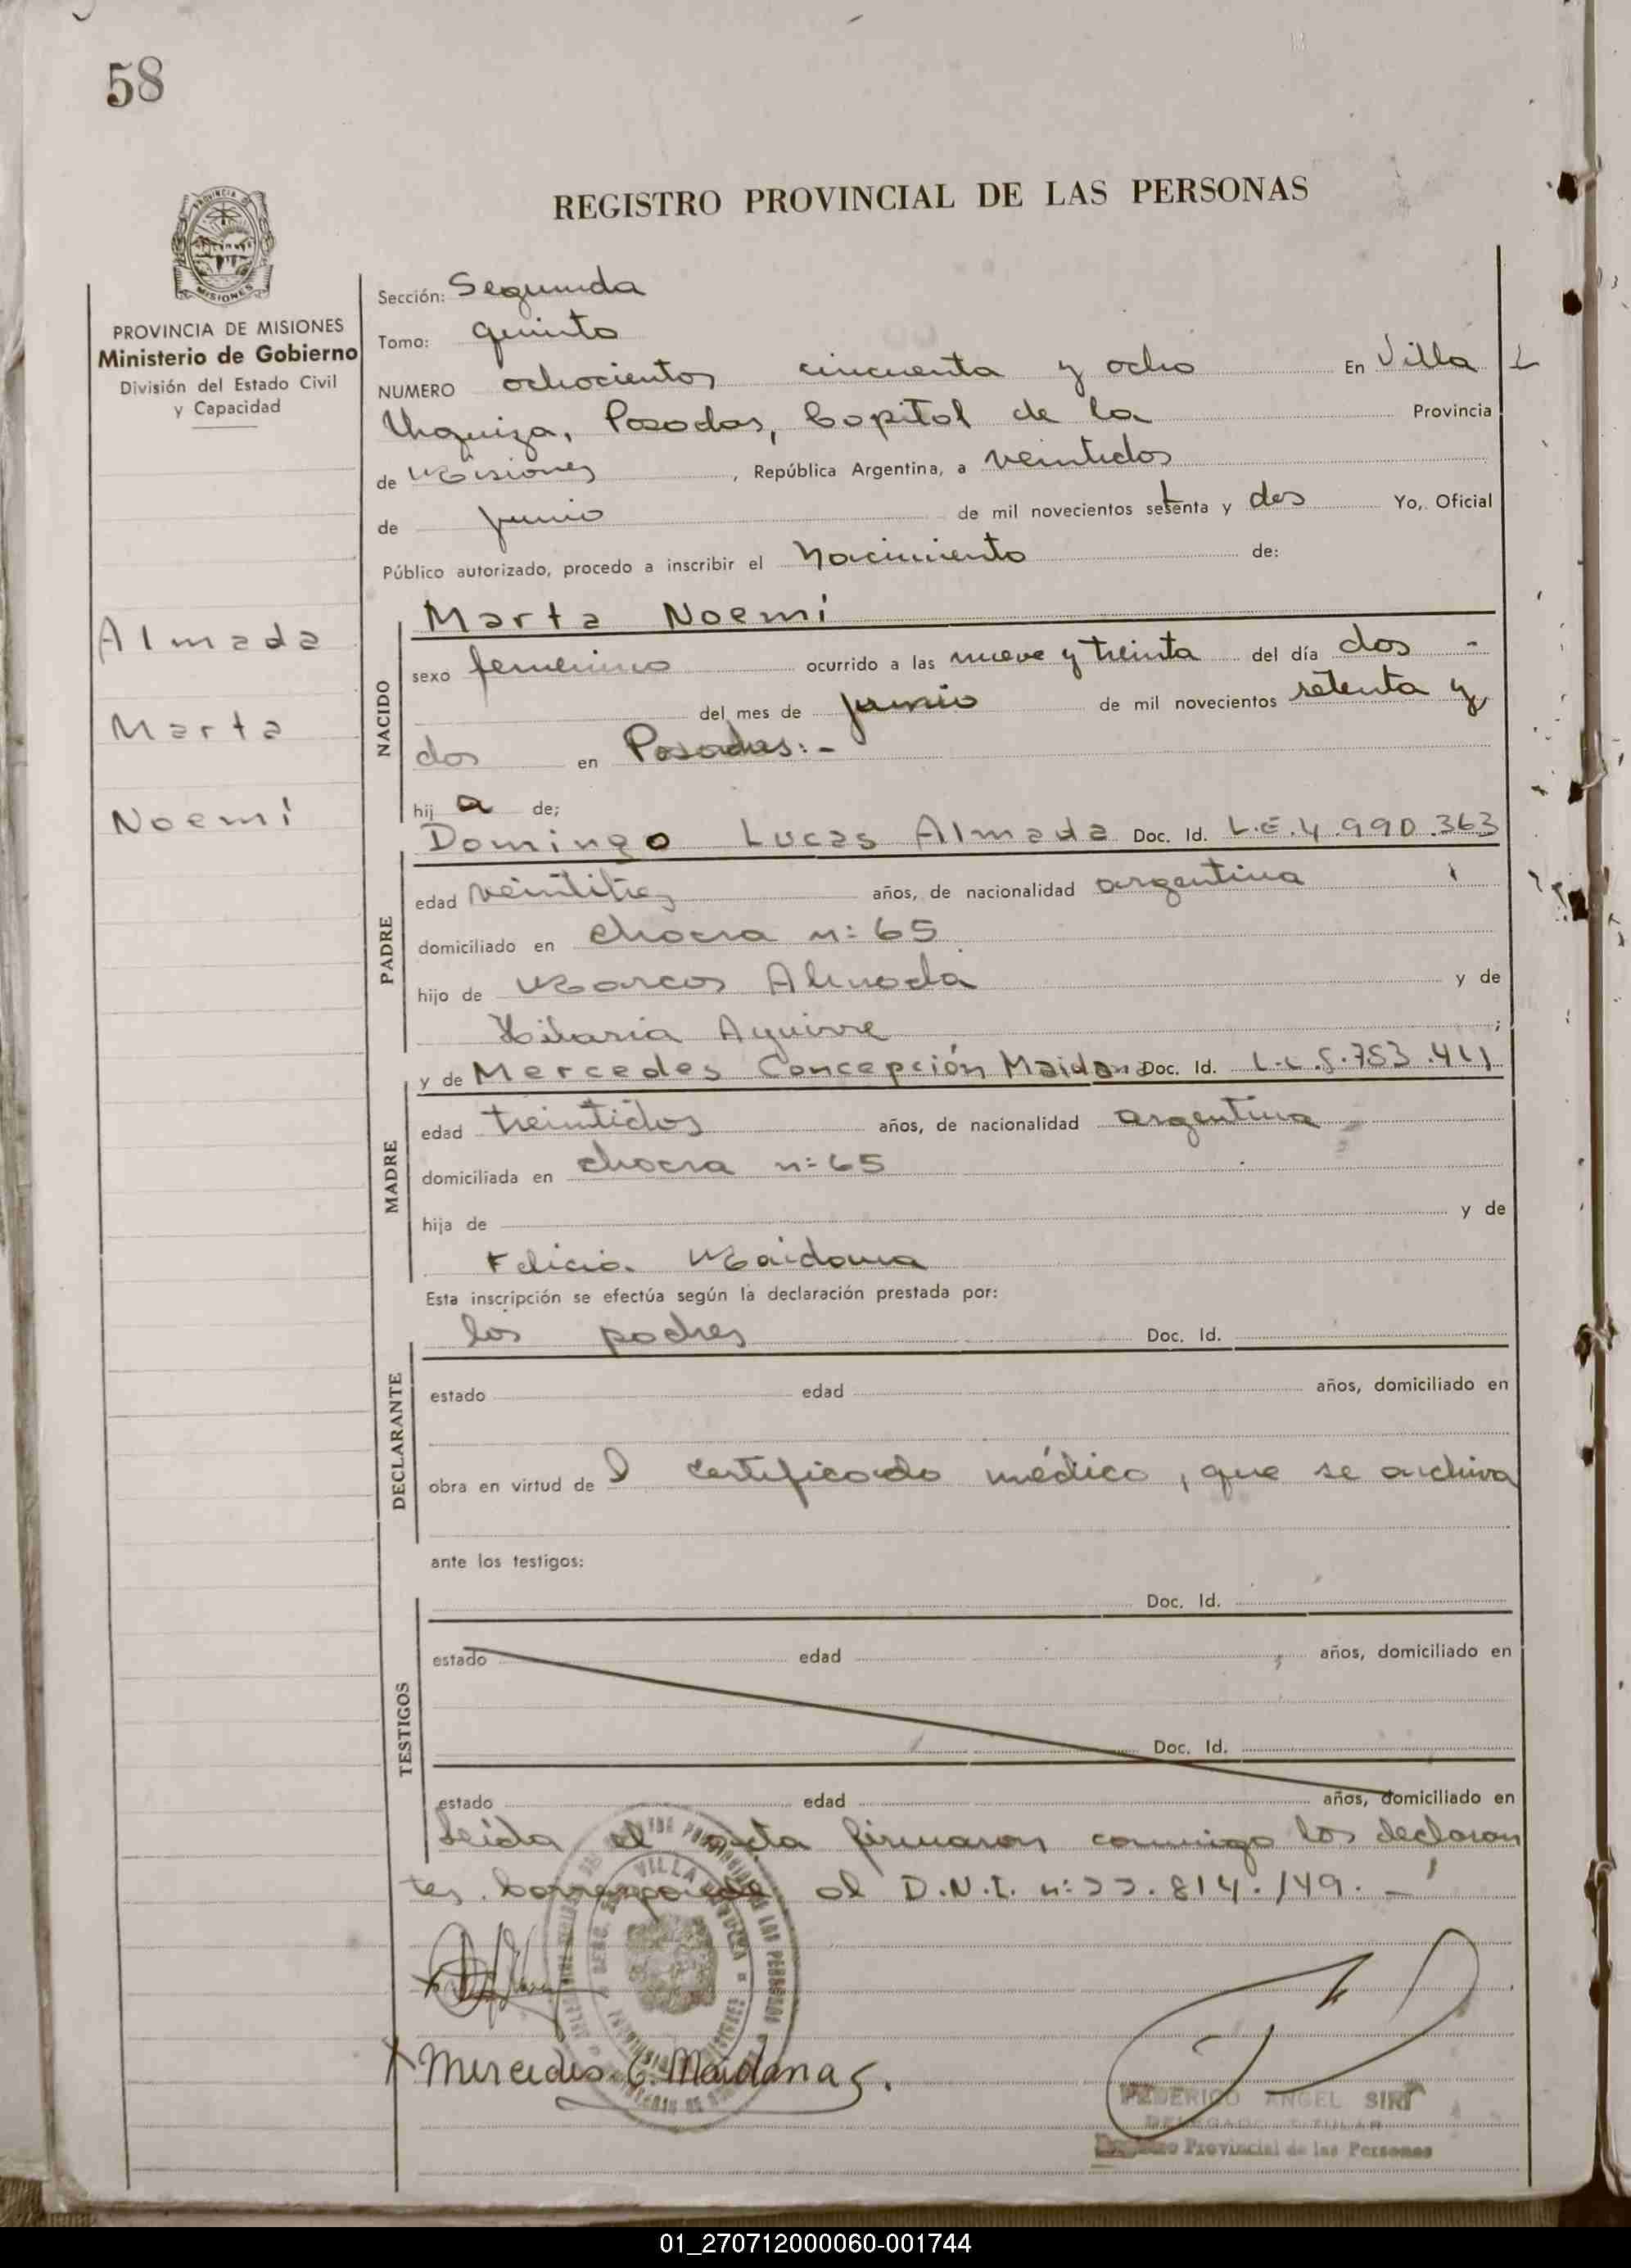 58
REGISTRO PROVINCIAL DE LAS PERSONAS
MISIONES
PROVINCIA DE MISIONES
Ministerio de Gobierno
División del Estado Civil
y Capacidad
Almada
Marta
Noemí
Sección: Segunda
Tomo: quinto
NUMERO ochocientos cincuenta y ocho En Villa
Urquiza, Posadas, Capital de la Provincia
de Misiones, República Argentina, a veintidos
de junio de mil novecientos setenta y dos Yo, Oficial
Público autorizado, procedo a inscribir el Nacimiento de:
NACIDO
Marta Noemí
sexo femenino ocurrido a las nueve y treinta del día dos -
del mes de junio de mil novecientos setenta y
dos en Posadas:-
hij a de;
PADRE
Domingo Lucas Almada Doc. Id. L.E. 4.990.363
edad veintitres años, de nacionalidad argentina
domiciliado en chacra n: 65
hijo de Marcos Almada y de
Hilaria Aguirre;
MADRE
y de Mercedes Concepción Maidana Doc. Id. L.C. 753.411
edad treintidos años, de nacionalidad argentina
domiciliada en chacra n: 65
hija de y de
Felicia Maidana
Esta inscripción se efectúa según la declaración prestada por:
DECLARANTE
los padres Doc. Id.
estado edad años, domiciliado en
obra en virtud de l certificado médico, que se archiva
ante los testigos:
TESTIGOS
Doc. Id.
estado edad años, domiciliado en
Doc. Id.
estado edad años, domiciliado en
Leida el acta firmaron conmigo los declaran
tes. Corresponde al D.N.I. n: 22.814.149. -
VILLA URQUIZA
x Mercedes C. Maidana.
FEDERICO ANGEL SIRI
DELEGADO TITULAR
Registro Provincial de las Personas
01_270712000060-001744